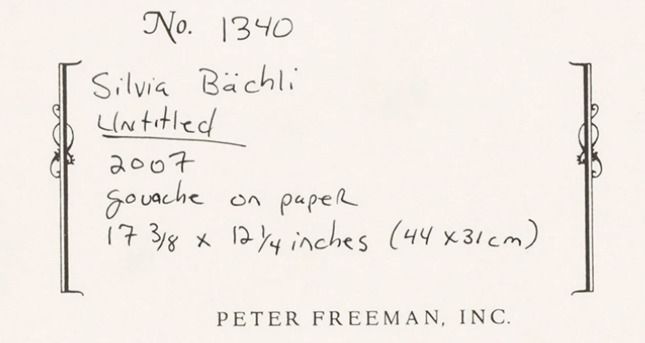 No. 1340
Silvia Bächli
Untitled
2007
gouache on paper
17 3/8 x 12 1/4 inches (44 x 31 cm)
PETER FREEMAN, INC.